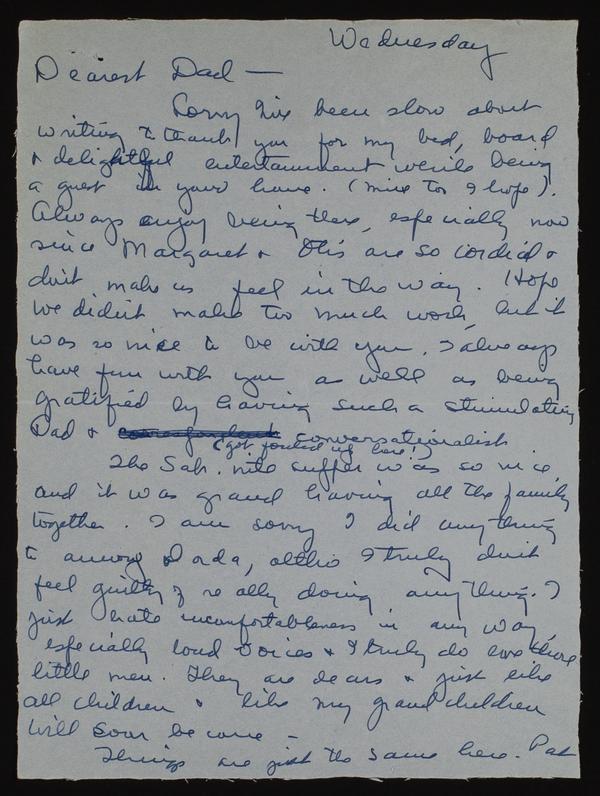 Wednesday
Dearest Dad —
Sorry I've been slow about
writing to thank you for my bed, board
& delightful entertainment while being
a guest in your home. (nice too I hope).
Always enjoy being there, especially now
since Margaret & Otis are so cordial &
don't make us feel in the way. Hope
we didn't make too much work, but it
was so nice to be with you. I always
have fun with you as well as being
gratified by having such a stimulating
Dad & conversationalist.
(got fouled up here!)
The Sat. nite supper was so nice,
and it was grand having all the family
together. I am sorry I did anything
to annoy Dorda, altho I truly don't
feel guilty of really doing anything. I
just hate uncomfortableness in any way,
especially loud voices & I truly do love those
little men. They are dears & just like
all children & like my grandchildren
will soon become —
Things are just the same here. Pat